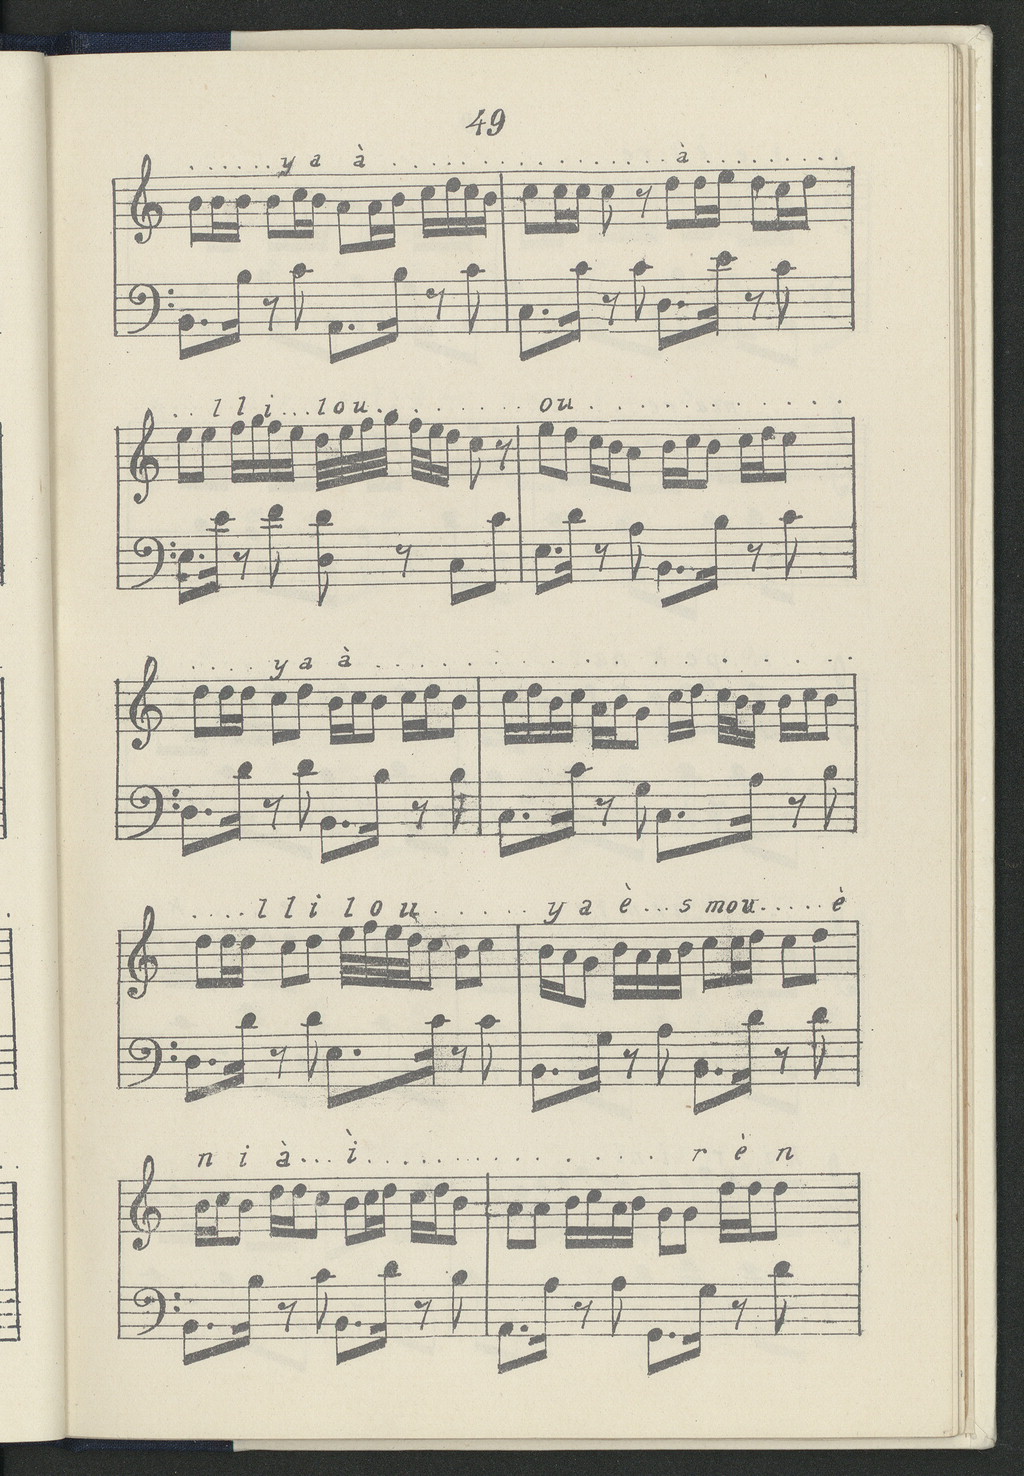 49
. . . . . . y a à . . . . . . . . . . . . . . à . . . . . . .
. . l l i . . . l o u . . . . . . . . ou . . . . . . . . . . .
. . . . y a à . . . . . . . . . . . . . . . .
. . . . l l i l o u . . . . . . y a è . . . s mou . . . . . è
n i à . . . ì . . . . . . . . . . . . . . . r è n